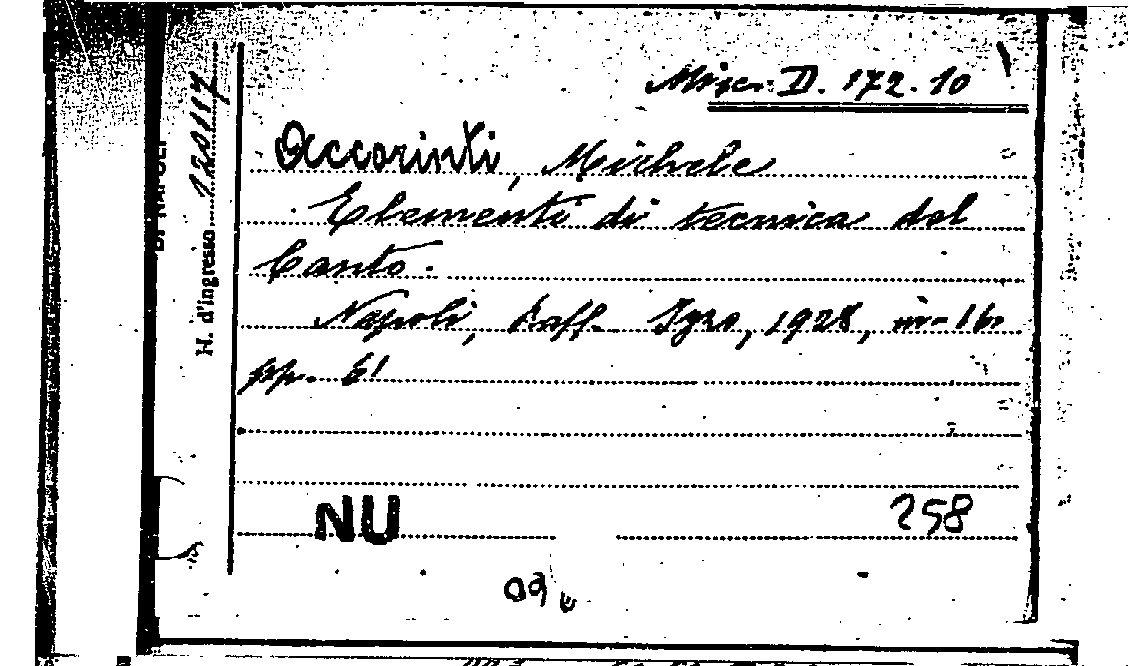 Misc. D. 172.10
Accorinti, Michele
Elementi di tecnica del
Canto.
Napoli, Raff. Izzo, 1928, in-16.
pp. 61
NU
258
DI NAPOLI
N. d'ingresso 120117